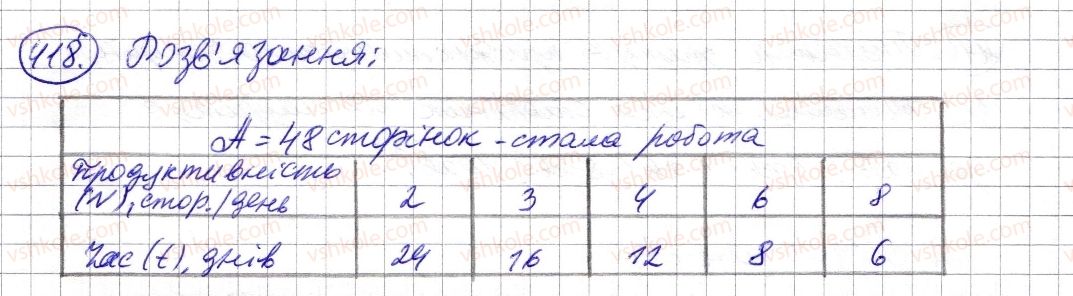 418. Розв'язання:
A = 48 сторінок - стала робота
Продуктивність (N), стор./день 2 3 4 6 8
Час (t), днів 24 16 12 8 6
vshkole.com